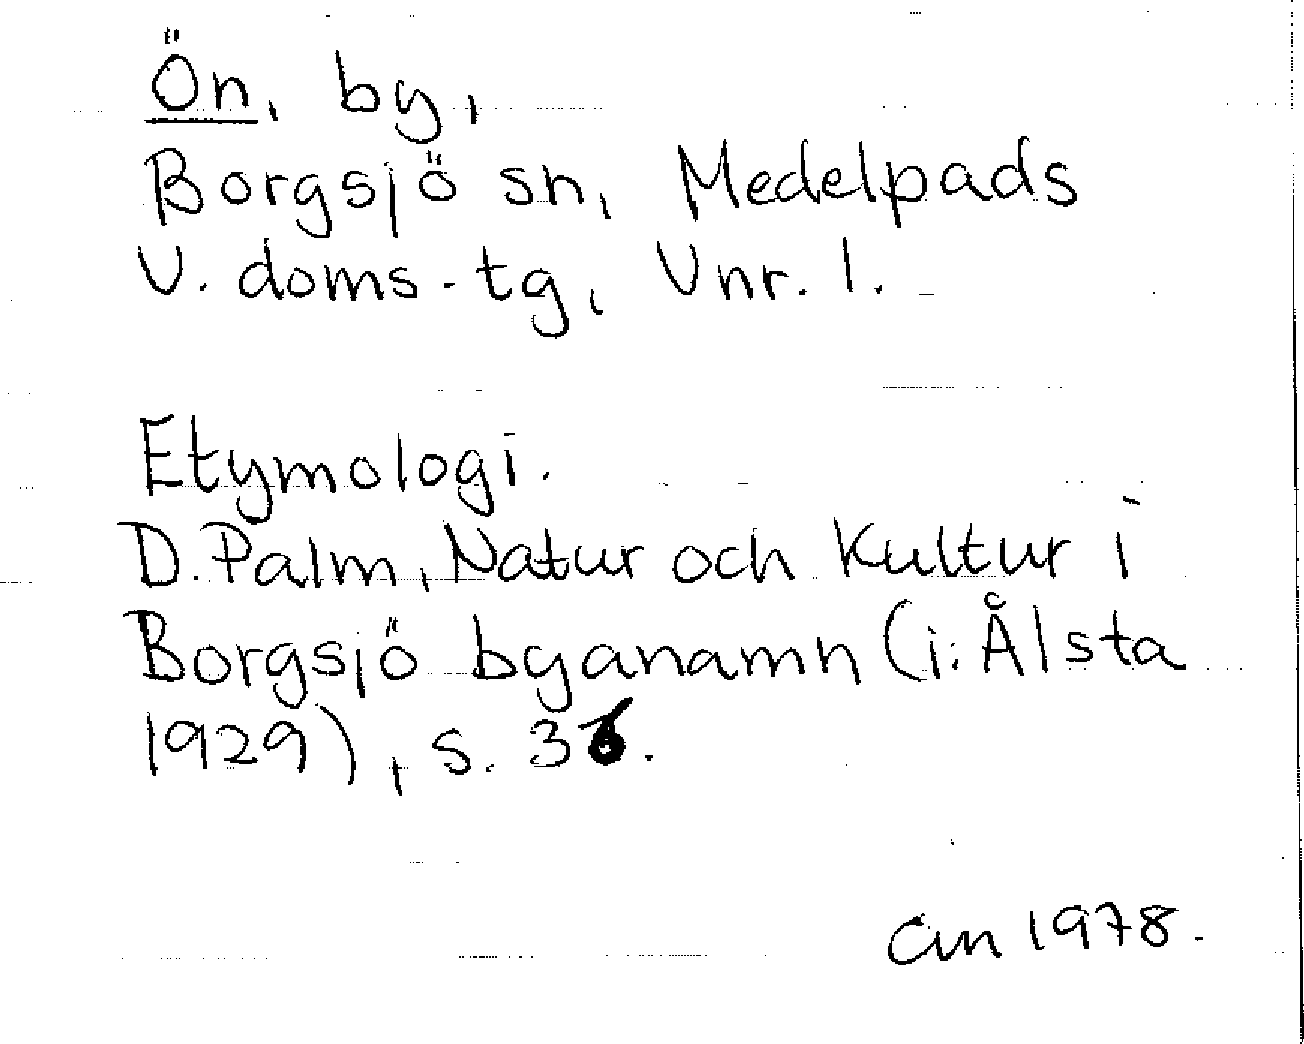 Ön, by,
Borgsjö sn, Medelpads
V. doms-tg, Vnr. 1.
Etymologi.
D. Palm, Natur och Kultur i
Borgsjö byanamn (i: Ålsta
1929), s. 36.
1978.